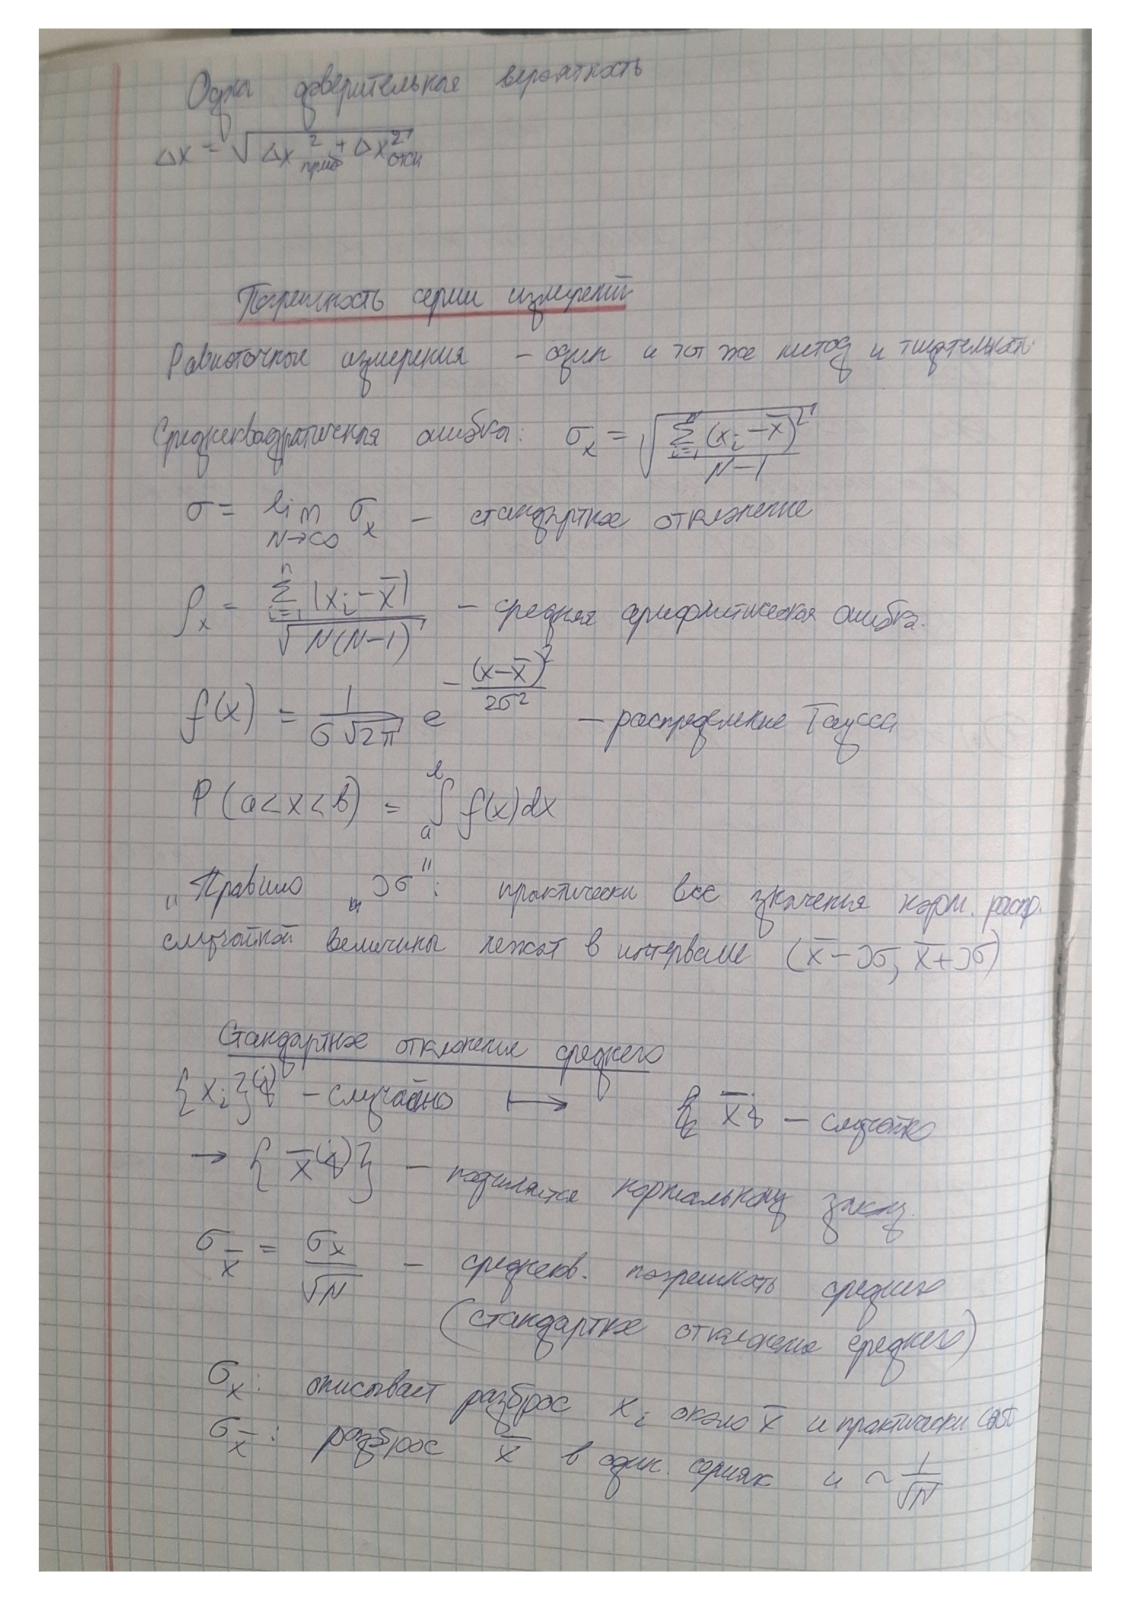 Одна доверительная вероятность
Δx = √(Δx²приб + Δx²откл)
Погрешность серии измерений
Равноточные измерения – один и тот же метод и тщательност.
Среднеквадратичная ошибка: σ_x = √(∑_{i=1}^{n} (x_i – x̄)² / (N–1))
σ = lim_{N→∞} σ_x – стандартное отклонение
ρ_x = ∑_{i=1}^{n} |x_i – x̄| / √(N(N–1)) – средняя арифметическая ошибка.
f(x) = 1/(σ√2π) e^{–(x–x̄)²/2σ²} – распределение Гаусса
P(a<x<b) = ∫_a^b f(x)dx
„Правило „3σ": практически все значения норм. распр.
случайной величины лежат в интервале (x̄–3σ, x̄+3σ)
Стандартное отклонение среднего
{x_i}^{(j)} – случайно ↦ x̄ – случайно
→ {x̄^{(j)}} – подчиняется нормальному закону.
σ_x̄ = σ_x/√N – среднекв. погрешность среднего
(стандартное отклонение среднего)
σ_x: описывает разброс x_i около x̄ и практически
σ_x̄: разброс x̄ в один. сериях и ~ 1/√N